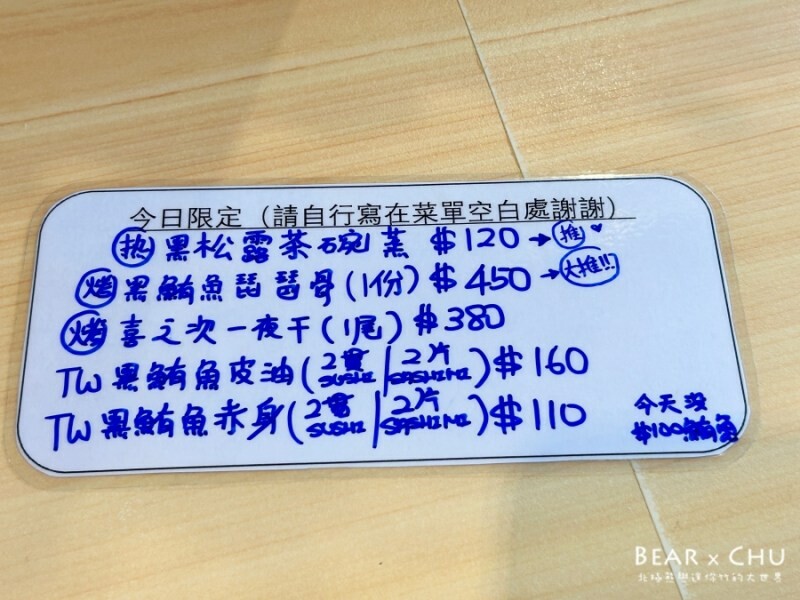 今日限定（請自行寫在菜單空白處謝謝）
热 黑松露茶碗蒸 $120→推♥
烤 黑鮪魚琵琶骨(1份) $450→大推!!!
烤 喜之次一夜干(1尾) $380
TW 黑鮪魚皮油(2貫SUSHI|2片SASHIMI) $160
TW 黑鮪魚赤身(2貫SUSHI|2片SASHIMI) $110
今天沒
$100鮪魚
BEAR x CHU
北極熊與迷你竹的大世界